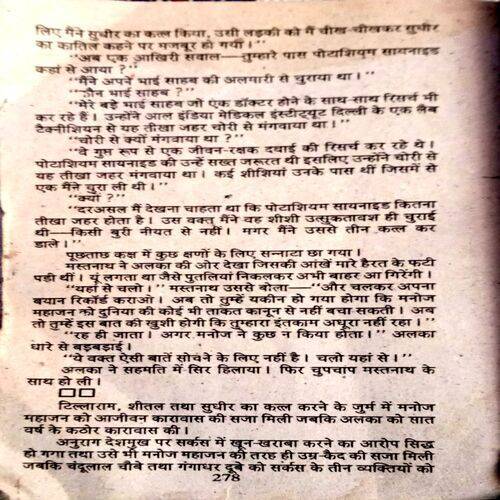 लिए मैंने सुधीर का कत्ल किया, उसी लड़की को मैं चीख-चीखकर सुधीर
का कातिल कहने पर मजबूर हो गया।''
''अब एक आखिरी सवाल—तुम्हारे पास पोटाशियम सायनाइड
कहां से आया ?''
''मैंने अपने भाई साहब की अलमारी से चुराया था।''
''कौन भाई साहब ?''
''मेरे बड़े भाई साहब जो एक डॉक्टर होने के साथ-साथ रिसर्च भी
कर रहे हैं। उन्होंने आल इंडिया मेडिकल इंस्टीट्यूट दिल्ली के एक लैब
टैक्नीशियन से यह तीखा जहर चोरी से मंगवाया था।''
''चोरी से क्यों मंगवाया था ?''
''वे गुप्त रूप से एक जीवन-रक्षक दवाई की रिसर्च कर रहे थे।
पोटाशियम सायनाइड की उन्हें सख्त जरूरत थी इसलिए उन्होंने चोरी से
यह तीखा जहर मंगवाया था। कई शीशियां उनके पास थीं जिसमें से
एक मैंने चुरा ली थी।''
''क्यों ?''
''दरअसल मैं देखना चाहता था कि पोटाशियम सायनाइड कितना
तीखा जहर होता है। उस वक्त मैंने वह शीशी उत्सुकतावश ही चुराई
थी—किसी बुरी नीयत से नहीं। मगर मैंने उससे तीन कत्ल कर
डाले।''
पूछताछ कक्ष में कुछ क्षणों के लिए सन्नाटा छा गया।
मस्तनाथ ने अलका की ओर देखा जिसकी आंखें मारे हैरत के फटी
पड़ी थीं। यूं लगता था जैसे पुतलियां निकलकर अभी बाहर आ गिरेंगी।
''यहां से चलो।'' मस्तनाथ उससे बोला—''और चलकर अपना
बयान रिकॉर्ड कराओ। अब तो तुम्हें यकीन हो गया होगा कि मनोज
महाजन को दुनिया की कोई भी ताकत कानून से नहीं बचा सकती। अब
तो तुम्हें इस बात की खुशी होगी कि तुम्हारा इंतकाम अधूरा नहीं रहा।''
''रह ही जाता। अगर मनोज ने कुछ न किया होता।'' अलका
धीरे से बड़बड़ाई।
''ये वक्त ऐसी बातें सोचने के लिए नहीं है। चलो यहां से।''
अलका ने सहमति में सिर हिलाया। फिर चुपचाप मस्तनाथ के
साथ हो ली।
□□
टिल्लाराम, शीतल तथा सुधीर का कत्ल करने के जुर्म में मनोज
महाजन को आजीवन कारावास की सजा मिली जबकि अलका को सात
वर्ष के कठोर कारावास की।
अनुराग देशमुख पर सर्कस में खून-खराबा करने का आरोप सिद्ध
हो गया तथा उसे भी मनोज महाजन की तरह ही उम्र-कैद की सजा मिली
जबकि चंदूलाल चौबे तथा गंगाधर दूबे को सर्कस के तीन व्यक्तियों को
278